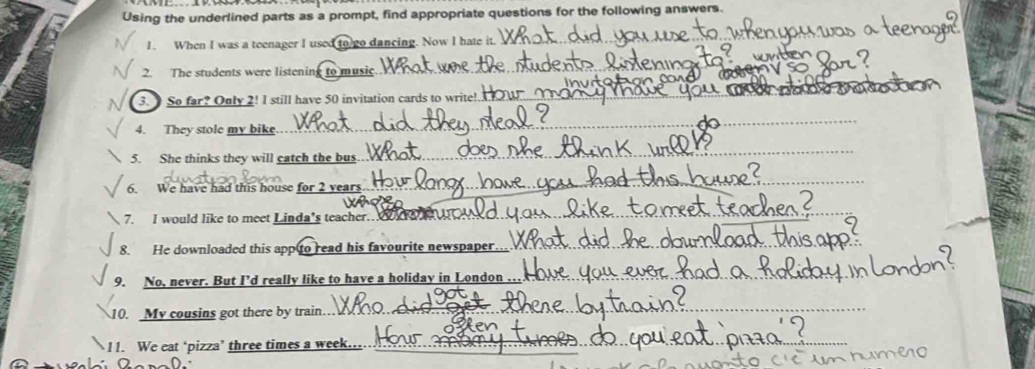 Using the underlined parts as a prompt, find appropriate questions for the following answers.
1. When I was a teenager I used to go dancing. Now I hate it. What did you use to when you was a teenager?
2. The students were listening to music What were the students listening to?
3. So far? Only 2! I still have 50 invitation cards to write! How many invitation card have you written so far?
4. They stole my bike What did they steal?
5. She thinks they will catch the bus What does she think will do?
duration form
6. We have had this house for 2 years How long have you had this house?
7. I would like to meet Linda's teacher. would you like to meet teacher?
8. He downloaded this app to read his favourite newspaper What did he download this app?
9. No, never. But I'd really like to have a holiday in London ... Have you ever had a holiday in London?
10. My cousins got there by train Who did got there by train?
11. We eat 'pizza' three times a week How often times do you eat 'pizza'?
c'è un numero